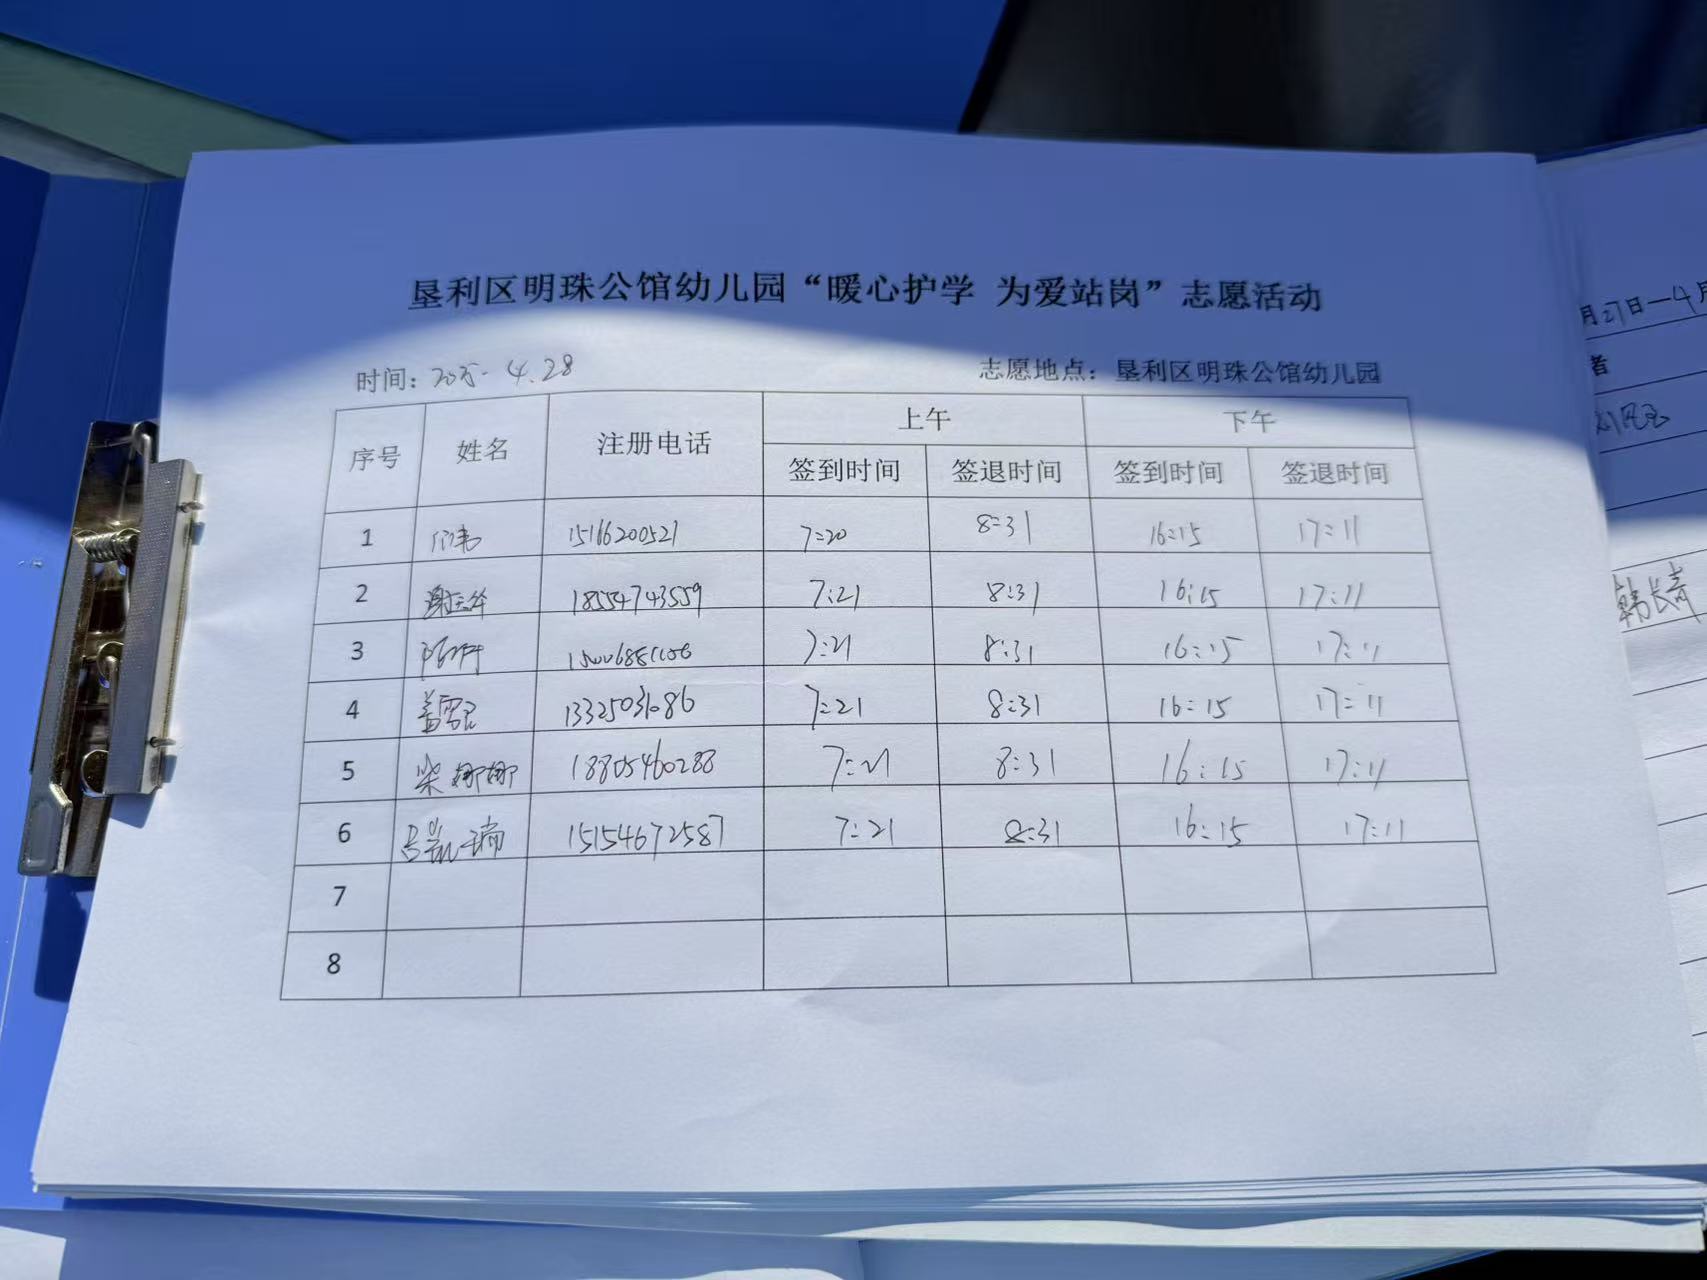 垦利区明珠公馆幼儿园“暖心护学 为爱站岗”志愿活动
时间: 4.28 志愿地点：垦利区明珠公馆幼儿园
序号 姓名 注册电话 上午 下午
签到时间 签退时间 签到时间 签退时间
1 15166200521 7:20 8:31 16:15 17:11
2 18554743559 7:21 8:31 16:15 17:11
3 7:21 8:31 16:15 17:11
4 7:21 8:31 16:15 17:11
5 柴娜娜 18805460288 7:21 8:31 16:15 17:11
6 15154672587 7:21 8:31 16:15 17:11
7
8
月27日—4月
者
韩长青